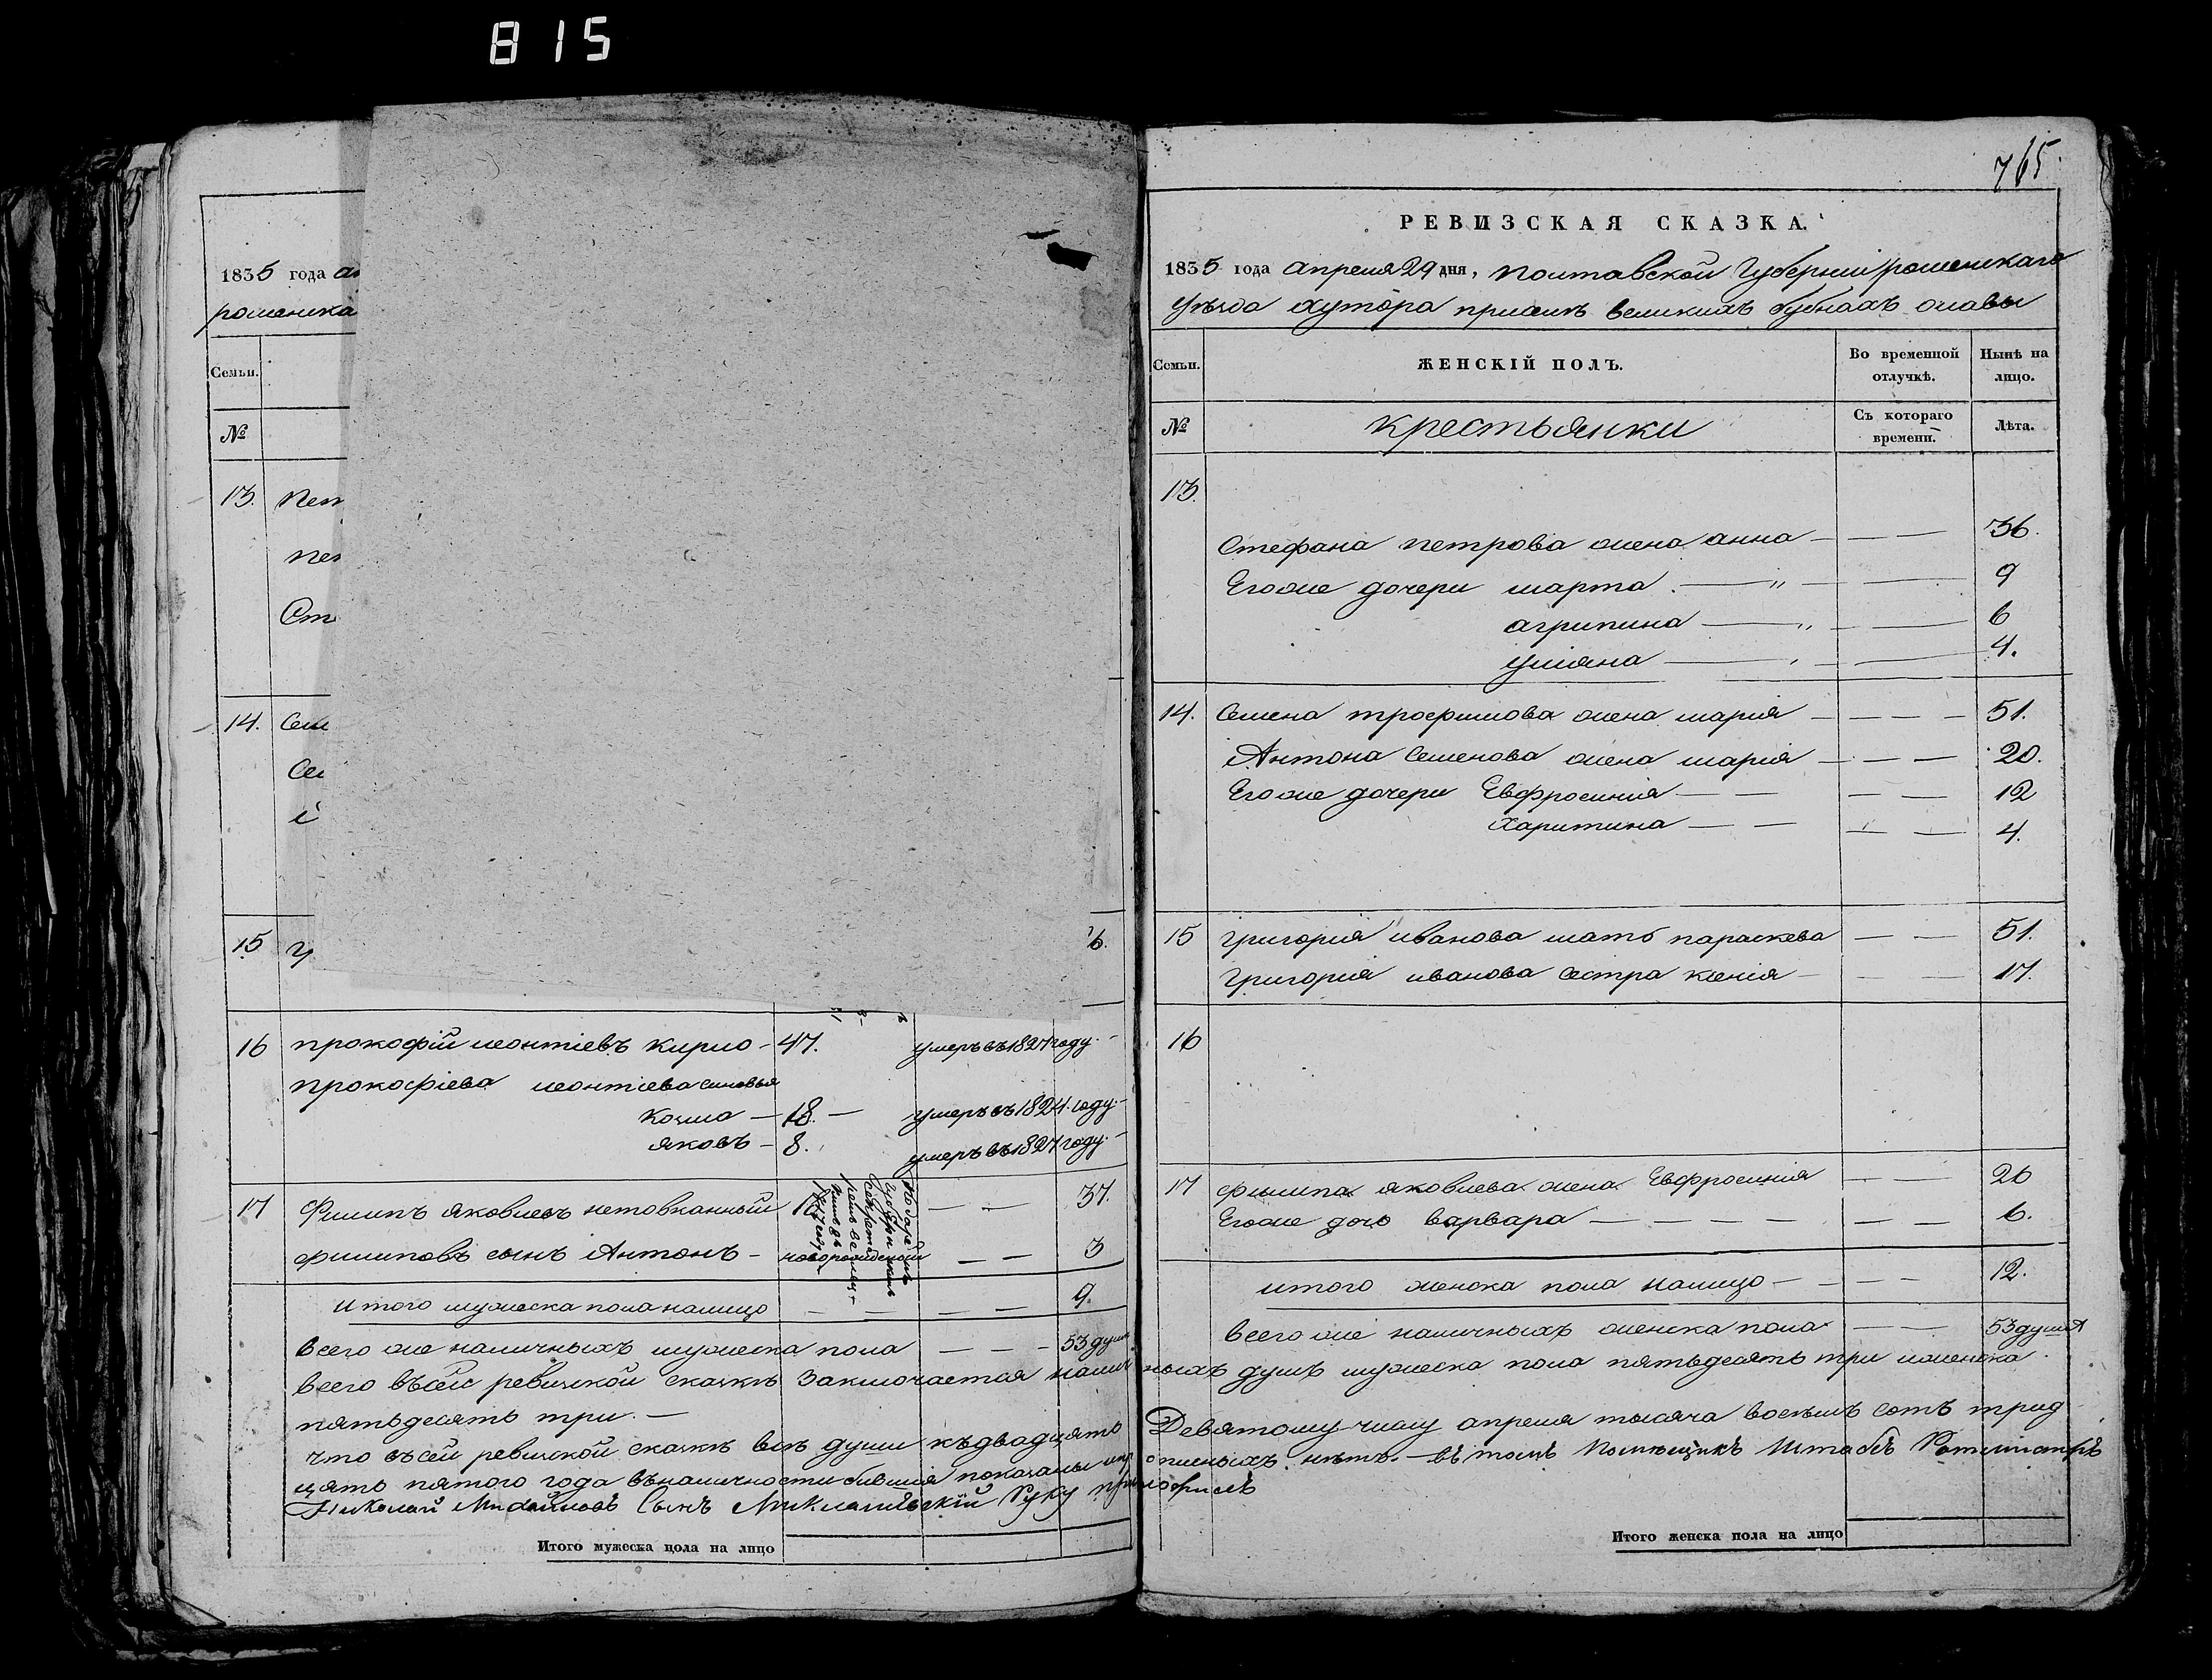 815
1835 года ап
роменска
Семьи.
№
13. Пет
Пет
Сте
14. Семе
Сем
15 Г 16.
16 прокофій леонтіевъ кирло - 47. умеръ въ 1827 году. -
прокофіева леонтіева сыновья
козма - 18. - умеръ въ 1824. году. -
яковъ - 8. умеръ въ 1827 году. -
17 Филипъ яковлевъ нетовканный — — 37.
филиповъ сынъ Антонъ - новорожденый — — 3
итого мужеска пола налицо — — — — 9.
всего же наличныхъ мужеска пола — — - 53 души
765.
РЕВИЗСКАЯ СКАЗКА.
1835 года апреля 29 дня, полтавской Губерніи роменскаго
уѣзда хутора при селѣ великихъ бубнахъ славы
Семьи. ЖЕНСКІЙ ПОЛЪ. Во временной отлучкѣ. Нынѣ на лицо.
№ крестьянки Съ котораго времени. Лѣта.
13.
Стефана петрова жена анна - — — 36.
Егоже дочери марта. — „ — — 9
агрипина — „ — — 6
уліяна — — — 4.
14. Семена трофимова жена марія - — — — 51.
Антона Семенова жена марія — — — 20.
Егоже дочери Евфросинія — — — — 12
Харитина — — — — 4.
15 григорія иванова мать параскева — — 51.
григорія иванова сестра ксенія — — — 17.
16
17 филипа яковлева жена Евфросинія — — 26
Егоже дочь варвара — — — — — — 6.
итого женска пола налицо — — — — 12.
всего же наличныхъ женска пола — — 53 души
всего въсей ревизкой сказкѣ заключается наличныхъ душъ мужеска пола пятьдесять три иженска
пятьдесять три. —
что въсей ревизкой сказкѣ всѣ души къдвадцять Девятому числу апреля тысяча восемь сотъ трид
цять пятого года въналичности бывшія показаны и прописныхъ нѣтъ. — въ томъ Помѣщикъ Штабъ Ротмистръ
Николай Михайловъ Сынъ Миклашевскій Руку приложилъ
Итого мужеска пола на лицо
Итого женска пола на лицо